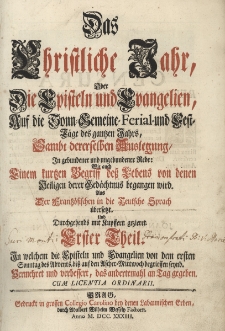 Das
Christliche Jahr,
Oder
Die Episteln und Evangelien,
Auf die Sonn- Gemeine- Ferial- und Fest-
Täge des gantzen Jahrs,
Sambt dererselben Auslegung,
In gebundener und ungebundener Rede:
Wie auch
Einem kurtzen Begriff des Lebens von denen
Heiligen derer Gedächtnus begangen wird.
Aus
Der Frantzösischen in die Teutsche Sprach
übersetzt,
Und
Durchgehends mit Kupffern geziert.
Erster Theil.
In welchem die Episteln und Evangelien von dem ersten
Sonntag des Advents, bis auf den Ascher-Mittwoch begriffen seynd.
Vermehret und verbessert, das andertemahl an Tag gegeben.
CUM LICENTIA ORDINARII.
PRAG,
Gedruckt in grossen Collegio Carolino bey denen Labaunischen Erben,
durch Adalbert Wilhelm Factorn.
Anno M. DCC. XXXIII.